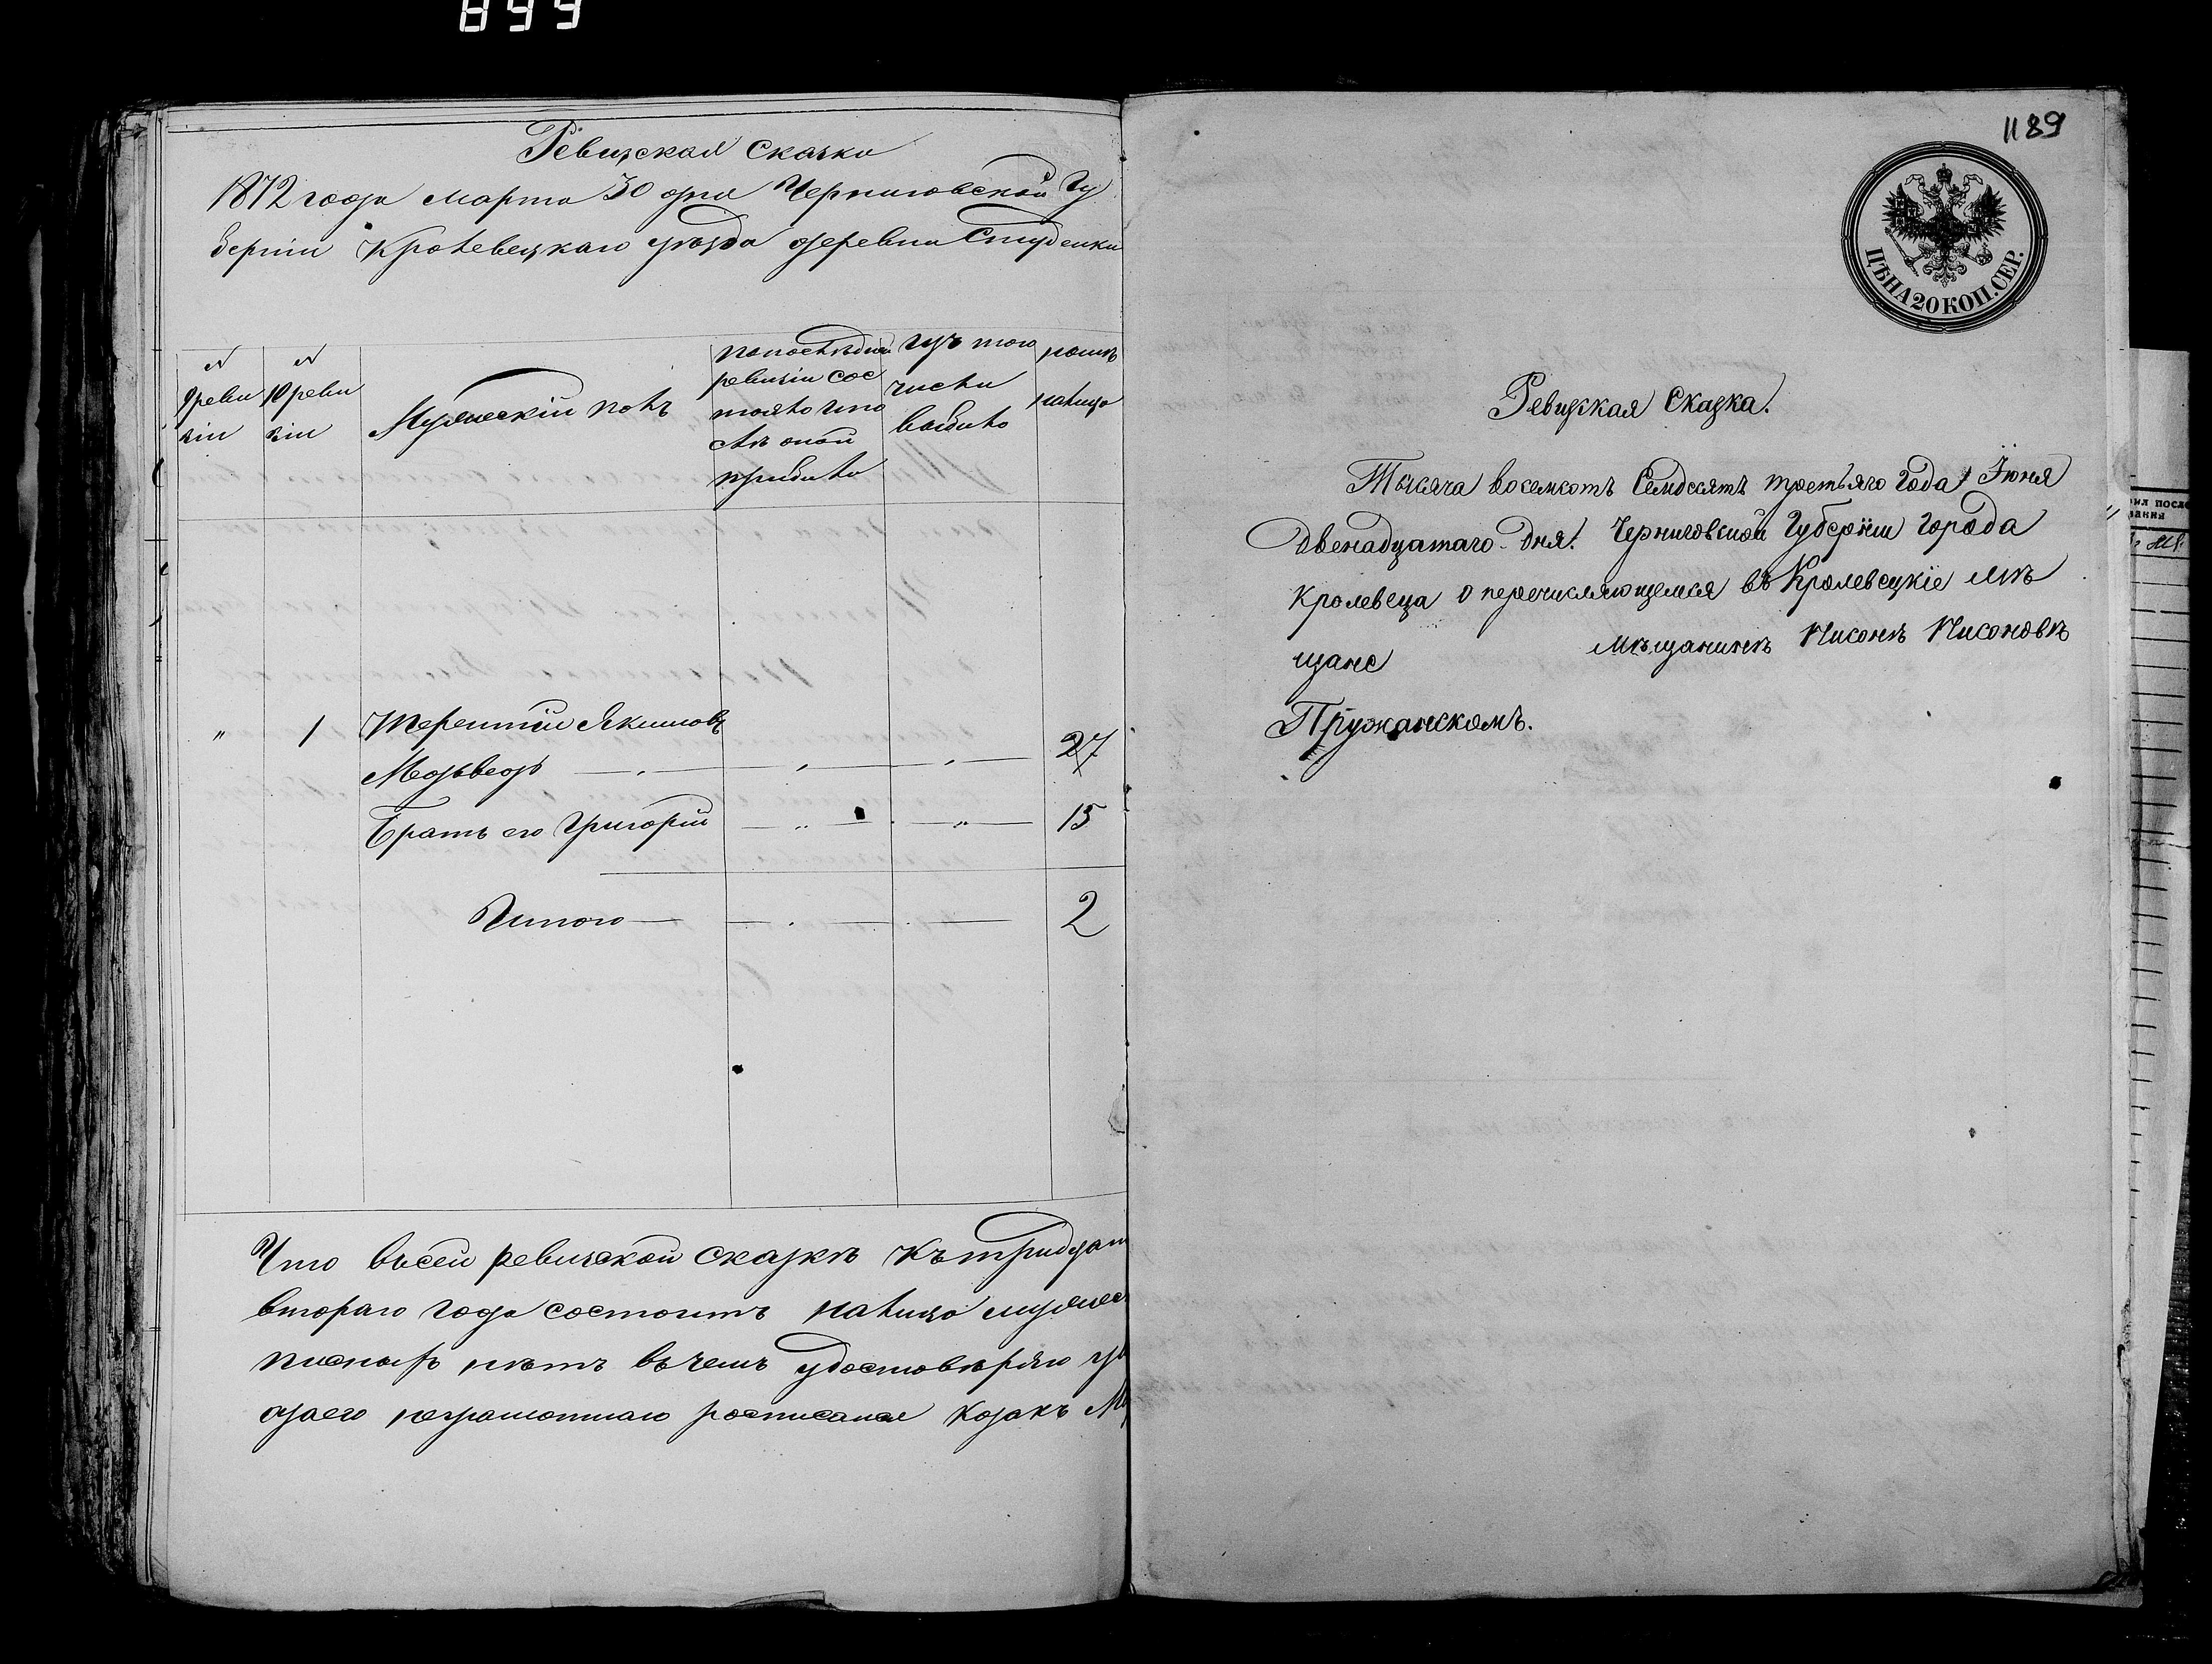 899
Ревизская Сказка
1872 года Марта 30 дня Черниговской Гу
берніи Кролевецкаго уѣзда деревни Студенки
N
9 реви
зіи
N
10 реви
зіи
Мужескій полъ
по последней
ревизіи сос
тояло или
послѣ оной
прибыло
Изъ того
числа
выбыло
ныне
налицо
" 1 Терентій Якимовъ
Медведь 27
Братъ его Григорій 15
Итого 2
Что въ сей ревизской сказкѣ къ тридцат
втораго года состоитъ налицо мужес
писныхъ нѣтъ въ чемъ удостовѣряю
неграмотнаго росписался Козакъ
1189
ЦѢНА 20 КОП. СЕР.
Ревизкая Сказка.
Тысяча восемсотъ Семдсятъ третьяго Года Іюня
двенадцатаго дня. Черниговской Губерніи Города
Кролевеца о перечисляющемся въ Кролевецкіе мѣ
щане мѣщанинѣ
Пружанскомъ.